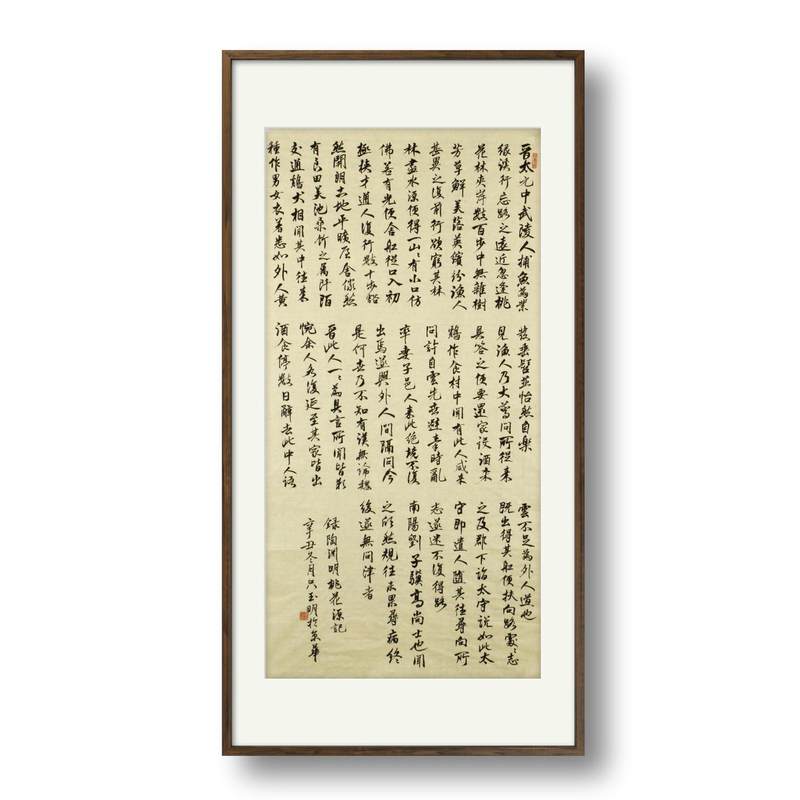 晉太元中武陵人捕魚為業
緣溪行忘路之遠近忽逢桃
花林夾岸數百步中無雜樹
芳草鮮美落英繽紛漁人
甚異之復前行欲窮其林
林盡水源便得一山〻有小口仿
佛若有光便舍船從口入初
極狹才通人復行數十步豁
然開朗土地平曠屋舍儼然
有良田美池桑竹之屬阡陌
交通雞犬相聞其中往來
種作男女衣著悉如外人黃
髮垂髫並怡然自樂
見漁人乃大驚問所從來
具答之便要還家設酒杀
雞作食村中聞有此人咸來
問訊自雲先世避秦時亂
率妻子邑人來此絕境不復
出焉遂與外人間隔問今
是何世乃不知有漢無論魏
晉此人一〻為具言所聞皆歎
惋余人各復延至其家皆出
酒食停數日辭去此中人語
雲不足為外人道也
既出得其船便扶向路處〻志
之及郡下詣太守說如此太
守即遣人隨其往尋向所
志遂迷不復得路
南陽劉子驥高尚士也聞
之欣然規往未果尋病終
後遂無問津者
錄陶淵明桃花源記
辛丑冬月玉明於京華